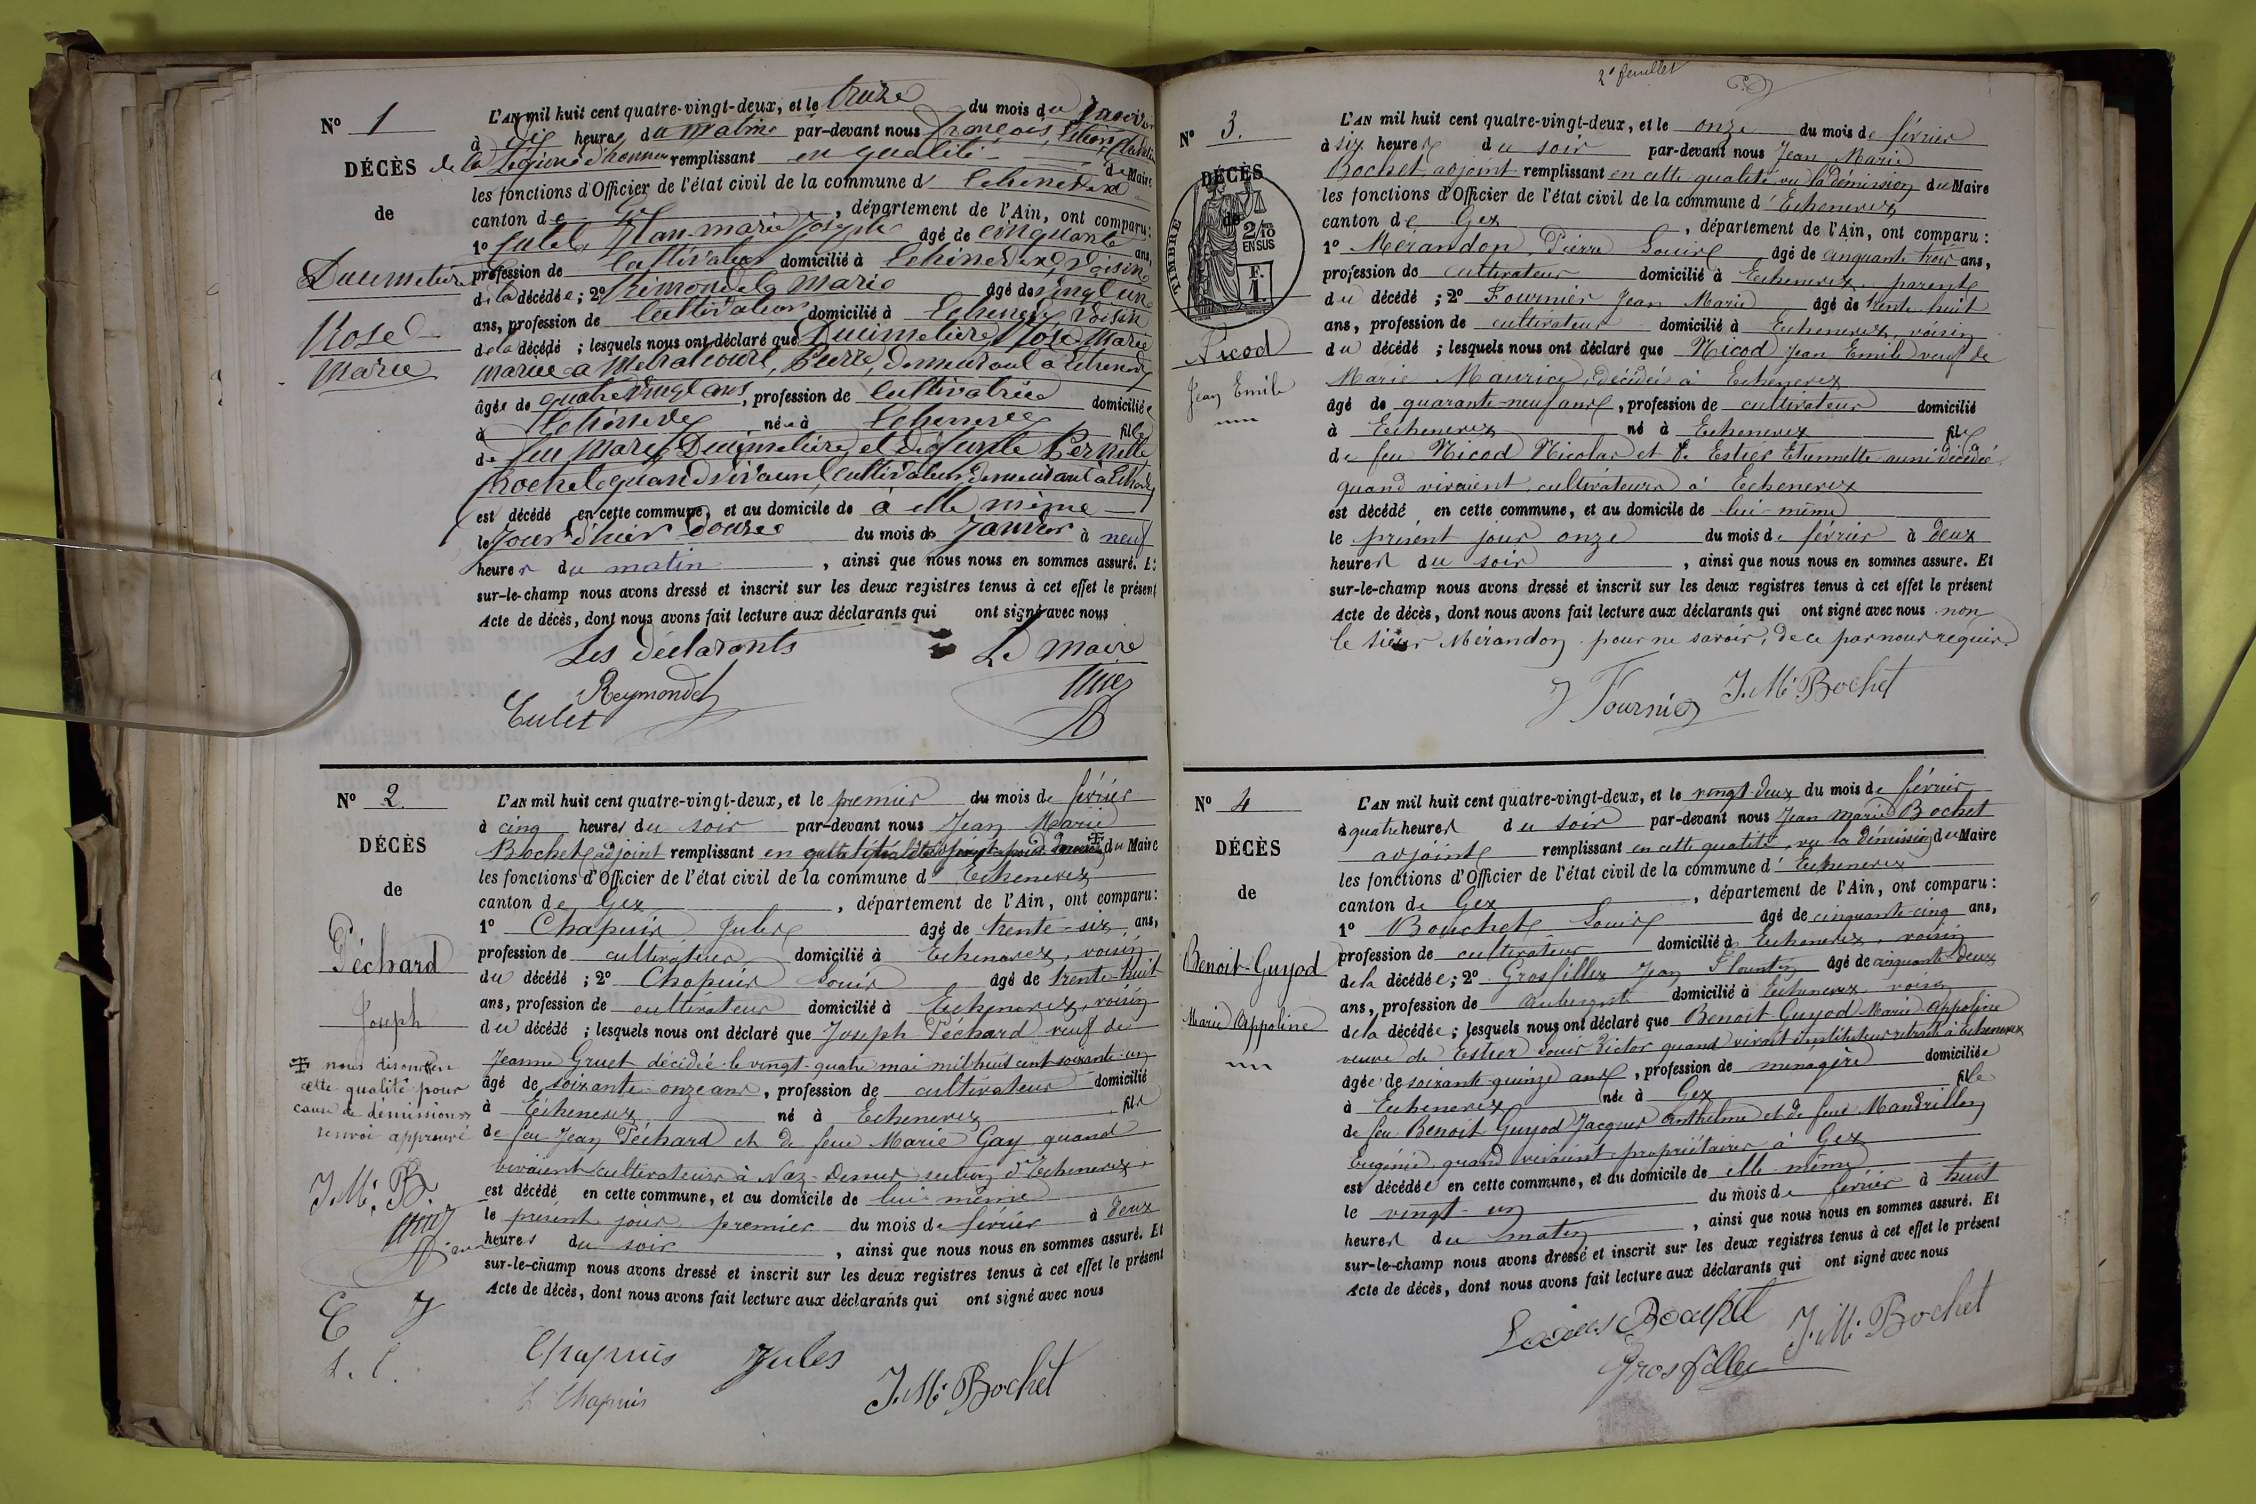 N° 1
DÉCÈS
de
Ducimetière
Rose
Marie
L'AN mil huit cent quatre-vingt-deux, et le treize du mois de Janvier
à dix heures du matin par-devant nous François,
de la Légion d'honneur remplissant en qualité de Maire
les fonctions d'Officier de l'état civil de la commune d' Echenevex
canton de Gex, département de l'Ain, ont comparu :
1° Culet, Jean-marie Joseph âgé de cinquante ans,
profession de Cultivateur domicilié à Echenevex, Voisin
de la décédée ; 2° Reimondet Marie âgé de vingt un
ans, profession de Cultivateur domicilié à Echenevex Voisin
de la décédé ; lesquels nous ont déclaré que Ducimetière Rose Marie
mariée a Metralcourt, Pierre, demeurant à Echenevex
âgée de quatre vingt ans, profession de Cultivatrice domiciliée
à Echenevex née à Echenevex fille
de feu Marc Ducimetière et défunte Pernette
Rochet quand vivaient Cultivateurs demeurant à Echenevex
est décédé en cette commune, et au domicile de à elle même
le Jour d'hier douze du mois de Janvier à neuf
heures du matin, ainsi que nous nous en sommes assuré. Et
sur-le-champ nous avons dressé et inscrit sur les deux registres tenus à cet effet le présent
Acte de décès, dont nous avons fait lecture aux déclarants qui ont signé avec nous
Les déclarants Le Maire
Reymondet
Culet
N° 2.
DÉCÈS
de
Péchard
Joseph
✠ nous disons en
cette qualité pour
cause de démission
renvoi approuvé
J. M. B.
C J
L. C.
L'AN mil huit cent quatre-vingt-deux, et le premier du mois de février
à cinq heures du soir par-devant nous Jean Marie
Bochet adjoint remplissant en ✠ du Maire
les fonctions d'Officier de l'état civil de la commune d' Echenevex
canton de Gex, département de l'Ain, ont comparu :
1° Chapuis Jules âgé de trente-six ans,
profession de cultivateur domicilié à Echenevex, voisin
du décédé ; 2° Chapuis Louis âgé de trente-huit
ans, profession de cultivateur domicilié à Echenevex, voisin
du décédé ; lesquels nous ont déclaré que Joseph Péchard veuf de
Jeanne Gruet décédée le vingt-quatre mai mil huit cent soixante-un
âgé de soixante-onze ans, profession de cultivateur domicilié
à Echenevex né à Echenevex fils
de feu Jean Péchard et de feue Marie Gay quand
vivaient cultivateurs à Naz-Dessus section d'Echenevex
est décédé en cette commune, et au domicile de lui-même
le présent jour premier du mois de février à deux
heures du soir, ainsi que nous nous en sommes assuré. Et
sur-le-champ nous avons dressé et inscrit sur les deux registres tenus à cet effet le présent
Acte de décès, dont nous avons fait lecture aux déclarants qui ont signé avec nous
Chapuis Jules
L Chapuis J. M. Bochet
2e feuillet
N° 3.
DÉCÈS
de
TIMBRE
2/10
EN SUS
F.
1.
Nicod
Jean Emile
L'AN mil huit cent quatre-vingt-deux, et le onze du mois de février
à six heures du soir par-devant nous Jean Marie
Bochet adjoint remplissant en cette qualité vu la démission du Maire
les fonctions d'Officier de l'état civil de la commune d' Echenevex
canton de Gex, département de l'Ain, ont comparu :
1° Mérandon Pierre Louis âgé de cinquante trois ans,
profession de cultivateur domicilié à Echenevex, parent
du décédé ; 2° Fournier Jean Marie âgé de trente huit
ans, profession de cultivateur domicilié à Echenevex, voisin
du décédé ; lesquels nous ont déclaré que Nicod Jean Emile veuf de
Marie Maurice, décédée à Echenevex
âgé de quarante-neuf ans, profession de cultivateur domicilié
à Echenevex né à Echenevex fils
de feu Nicod Nicolas et de Estier Etiennette aussi décédée
quand vivaient cultivateurs à Echenevex
est décédé en cette commune, et au domicile de lui-même
le présent jour onze du mois de février à deux
heures du soir, ainsi que nous nous en sommes assuré. Et
sur-le-champ nous avons dressé et inscrit sur les deux registres tenus à cet effet le présent
Acte de décès, dont nous avons fait lecture aux déclarants qui ont signé avec nous non
le sieur Mérandon pour ne savoir, de ce par nous requis.
J Fournier J. M. Bochet
N° 4
DÉCÈS
de
Benoit-Guyod
Marie Appoline
L'AN mil huit cent quatre-vingt-deux, et le vingt-deux du mois de février
à quatre heures du soir par-devant nous Jean Marie Bochet
adjoint remplissant en cette qualité, vu la démission du Maire
les fonctions d'Officier de l'état civil de la commune d' Echenevex
canton de Gex, département de l'Ain, ont comparu :
1° Bouchet Louis âgé de cinquante-cinq ans,
profession de cultivateur domicilié à Echenevex, voisin
de la décédée ; 2° Grosfillex Jean Florentin âgé de cinquante-deux
ans, profession de aubergiste domicilié à Echenevex, voisin
de la décédée ; lesquels nous ont déclaré que Benoit-Guyod Marie Appoline
veuve de Estier Louis Victor quand vivait instituteur retraité à Echenevex
âgée de soixante-quinze ans, profession de ménagère domiciliée
à Echenevex née à Gex fille
de feu Benoit Guyod Jacques Anthelme et de feue Mandrillon
Eugénie quand vivaient propriétaires à Gex
est décédée en cette commune, et au domicile de elle même
le vingt-un du mois de février à huit
heures du matin, ainsi que nous nous en sommes assuré. Et
sur-le-champ nous avons dressé et inscrit sur les deux registres tenus à cet effet le présent
Acte de décès, dont nous avons fait lecture aux déclarants qui ont signé avec nous
Louis Bouchet J. M. Bochet
Grosfillex